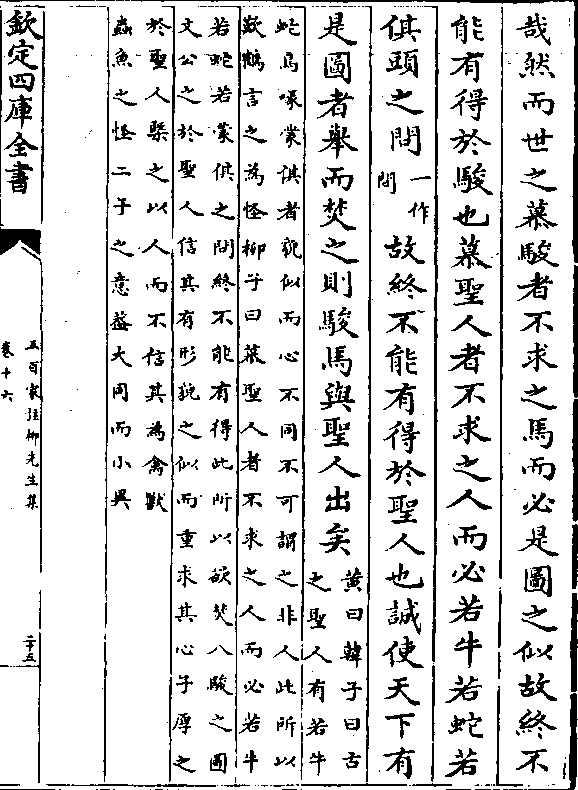 哉然而世之慕駿者不求之馬而必是圖之似故終不
能有得於駿也慕聖人者不求之人而必若牛若蛇若
倛頭之問一作問故終不能有得於聖人也誠使天下有
是圖者舉而焚之則駿馬與聖人出矣黄曰韓子曰古之聖人有若牛
蛇鳥喙蒙倛者貌似而心不同不可謂之非人此所以
歎鶴言之為怪柳子曰慕聖人者不求之人而必若牛
若蛇若蒙倛之問終不能有得此所以欲焚八駿之圖
文公之於聖人信其有形貌之似而重求其心子厚之
於聖人槩之以人而不信其為禽獸
蟲魚之怪二子之意葢大同而小異
欽定四庫全書
五百家注柳先生集
卷十六
二十五